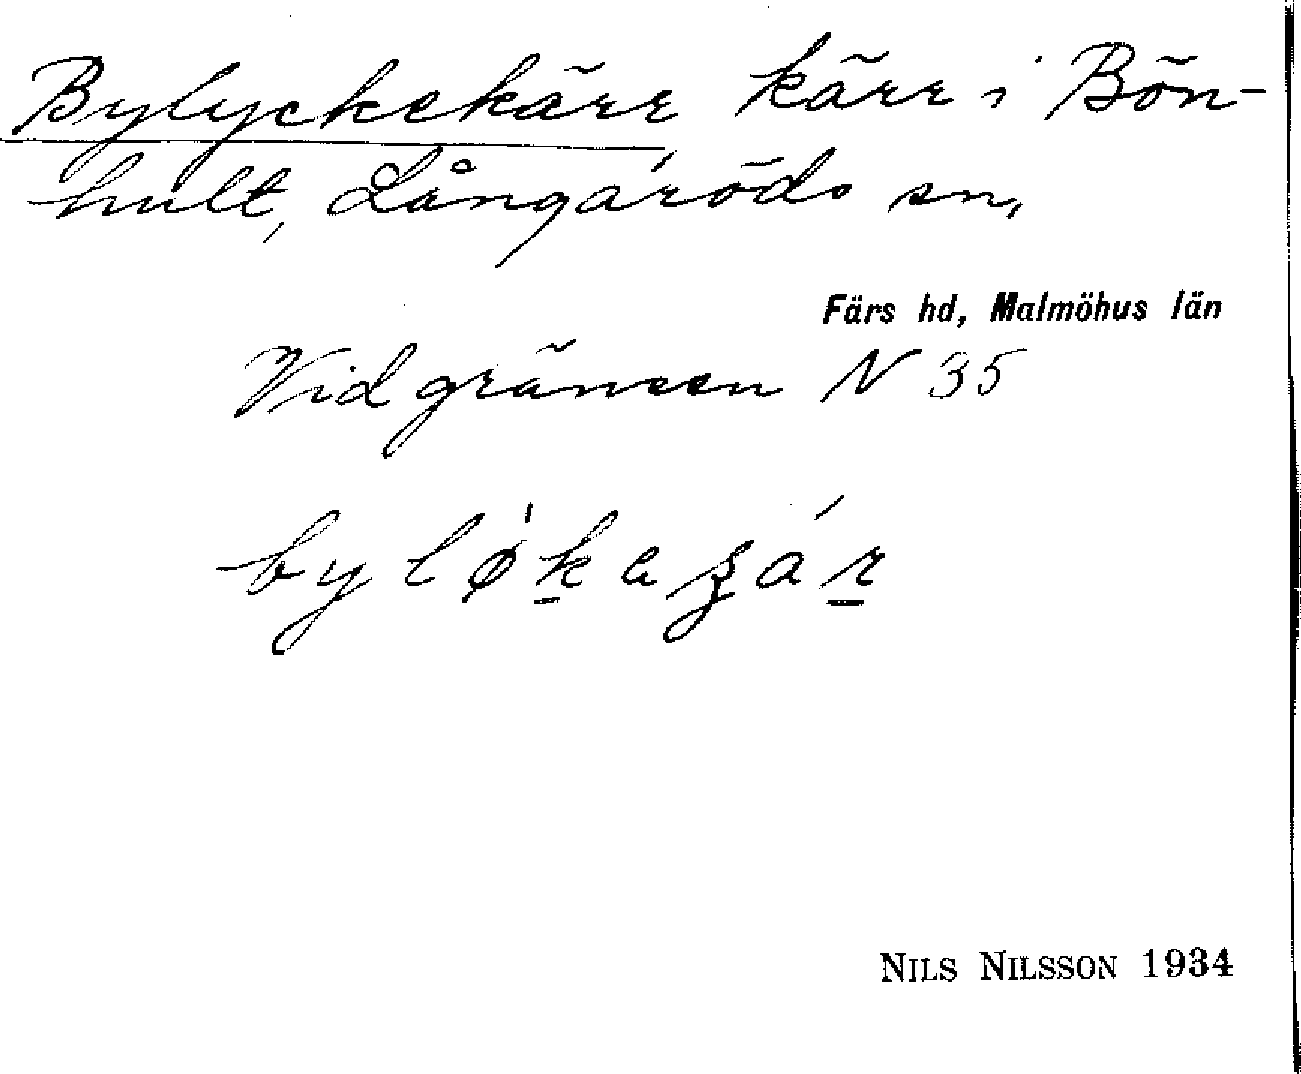 Bylyckekärr kärr i Bön-
hult, Långaröds sn,
Färs hd, Malmöhus län
Vid gränsen N 35
NILS NILSSON 1934